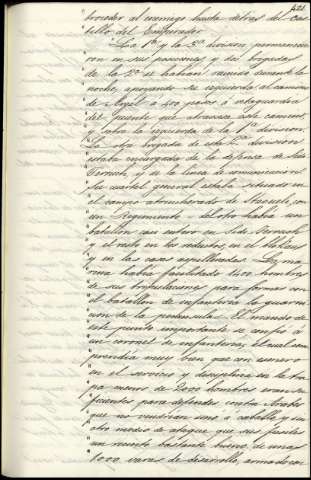 421
ceder al enemigo hasta detras del Cas
tillo del Emperador.
" La 1ª y la 3ª division permanecie
" ron en sus posiciones y dos brigadas
" de la 2ª se habian reunido durante la
" noche, apoyando su izquierda al camino
" de Argel á 400 pasos á retaguardia
" del puente que atraviesa este camino,
" y sobre la izquierda de la 1ª division.
" La otra brigada de esta 2ª division
" estaba encargada de la defensa de Sidi
" Ferruch, y de la linea de comunicacion:
" su cuartel general estaba situado en
" el campo atrincherado de Staoueli, con
" un Regimiento: del otro habia un
" batallon casi entero en Sidi Ferruch
" y el resto en los reductos, en el blokaus
" y en las casas aspilleradas. La ma
" rina habia facilitado 1400 hombres
" de sus tripulaciones para formar con
" el batallon de infanteria la guarni
" cion de la peninsula. El mando de
" este punto importante se confió á
" un coronel de infanteria, el cual com
" prendia muy bien que con esmero
" en el servicio y disciplina en la tro
" pa menos de 2000 hombres eran su
" ficientes para defender contra Arabes
" que no vendrian sino á caballo y sin
" otro medio de ataque que sus fusiles
" un recinto bastante bueno, de unas
" 1000 varas de desarrollo, armado con